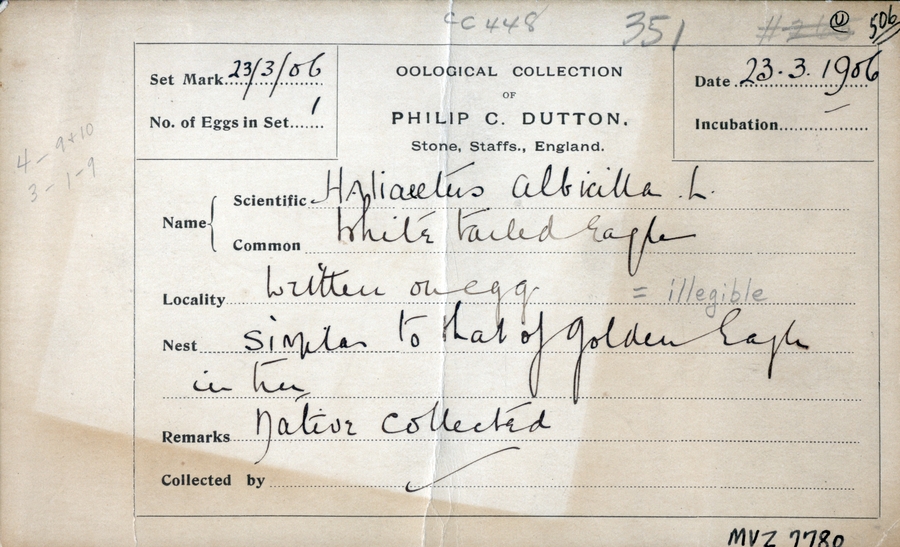 CC 448 351 U 506
Set Mark 23/3/06
No. of Eggs in Set 1
OOLOGICAL COLLECTION
OF
PHILIP C. DUTTON.
Stone, Staffs., England.
Date 23.3.1906
Incubation –
4 – 9+10
3 – 1 – 9
Name { Scientific Haliaeetus albicilla L.
Common White tailed Eagle
Locality Written on egg = illegible
Nest Similar to that of Golden Eagle
in tree
Remarks Native collected
Collected by
MVZ 7780